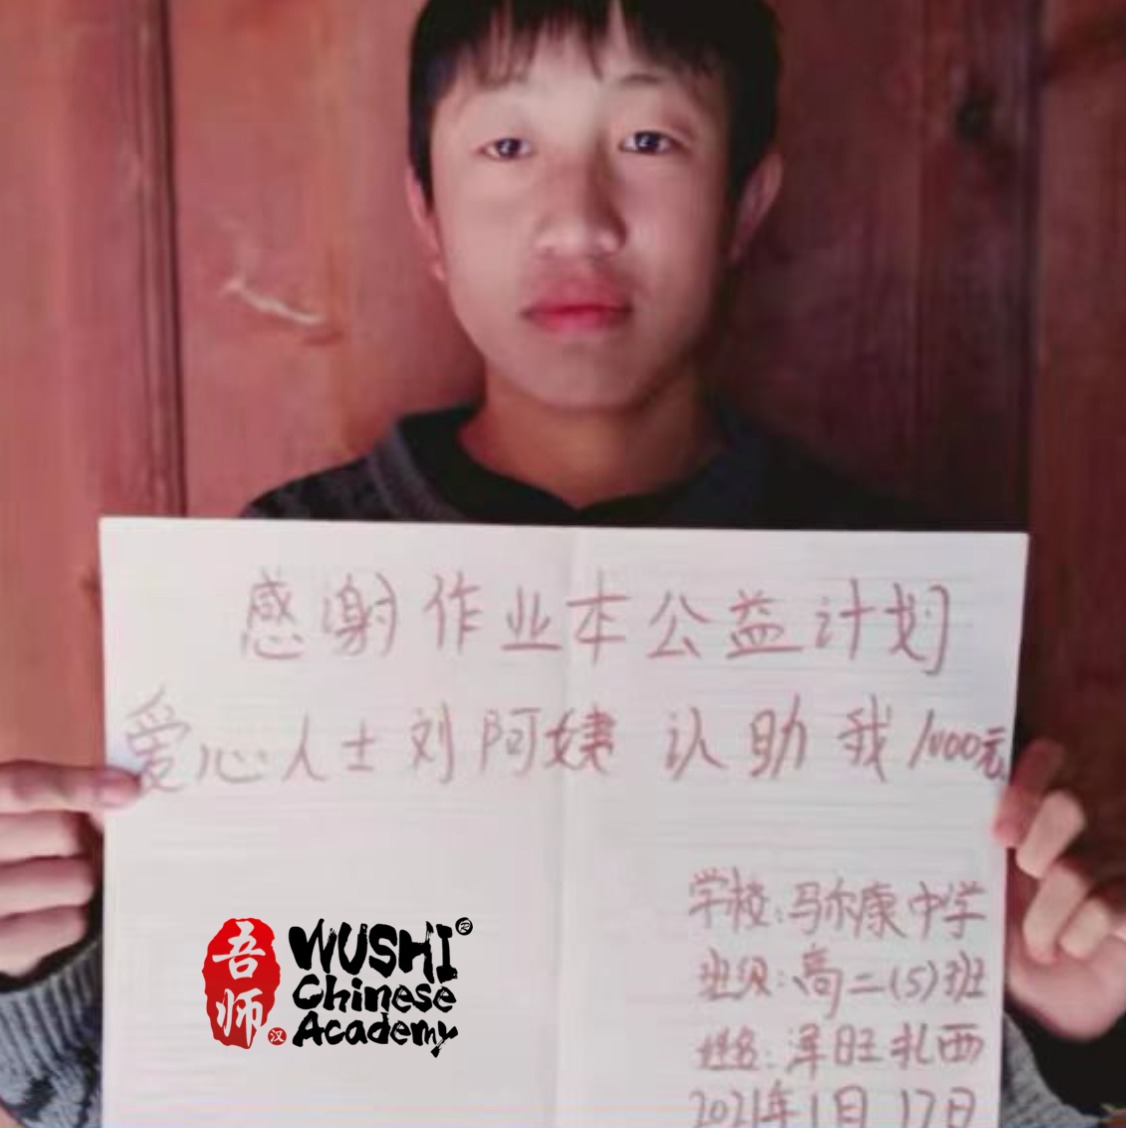 感谢作业本公益计划
爱心人士刘阿姨 认助我1000元.
吾师
汉
WUSHI®
Chinese
Academy
学校:马尔康中学
班级:高二(5)班
姓名:泽旺扎西
2021年1月17日